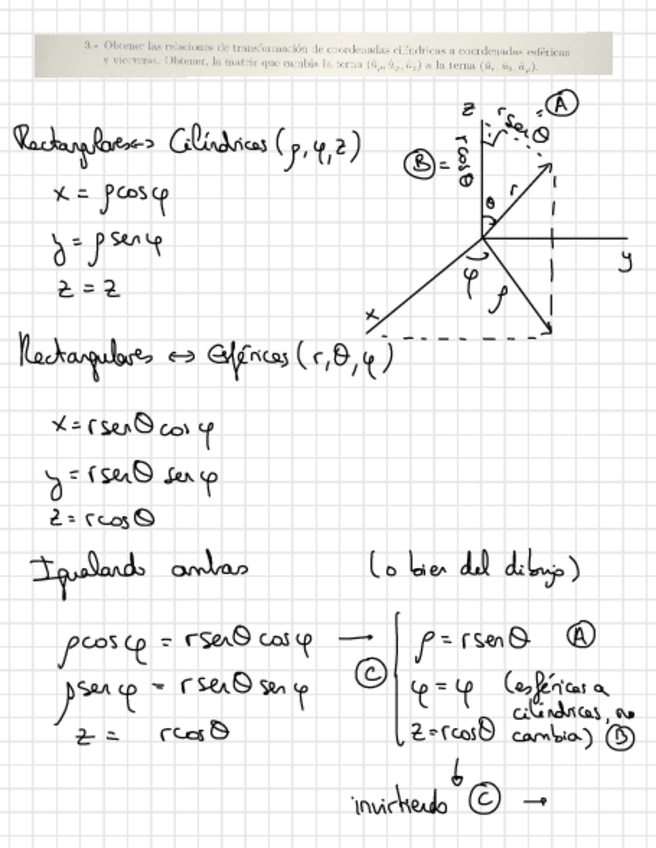 3.- Obtener las relaciones de transformación de coordenadas cilíndricas a coordenadas esféricas
y viceversa. Obtener, la matriz que cambia la terna (û_ρ, û_φ, û_z) a la terna (û_r, û_θ, û_φ).
Rectangulares ↔ Cilíndricas (ρ, φ, z)
x = ρcosφ
y = ρsenφ
z = z
z
rsenθ = Ⓐ
Ⓑ = rcosθ
θ
r
y
φ
ρ
x
Rectangulares ↔ Esféricas (r, θ, φ)
x = rsenθ cosφ
y = rsenθ senφ
z = rcosθ
Igualando ambas (o bien del dibujo)
ρcosφ = rsenθ cosφ → ρ = rsenθ Ⓐ
ρsenφ = rsenθ senφ Ⓒ φ = φ (esféricas a cilíndricas, no cambia)
z = rcosθ z = rcosθ Ⓑ
invirtiendo Ⓒ →